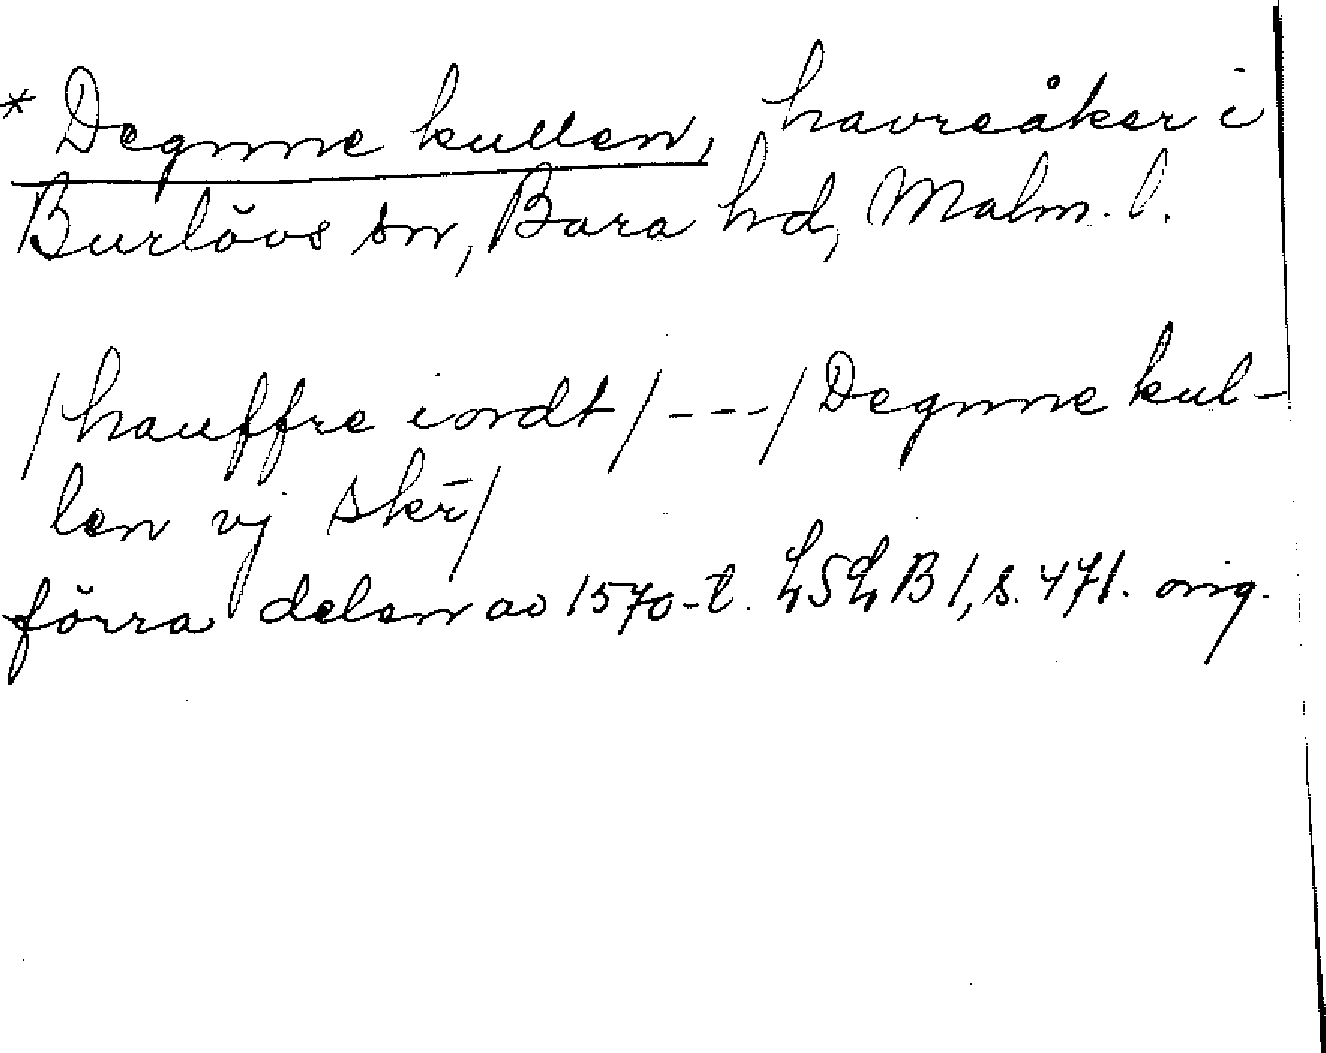 * Degnne kullen, havreåker i
Burlövs sn, Bara hd, Malm. l.
/hauffre iordt/---/Degnne kul-
len vj skr̄/
förra delen av 1570-t. LSLB1, s. 471. orig.